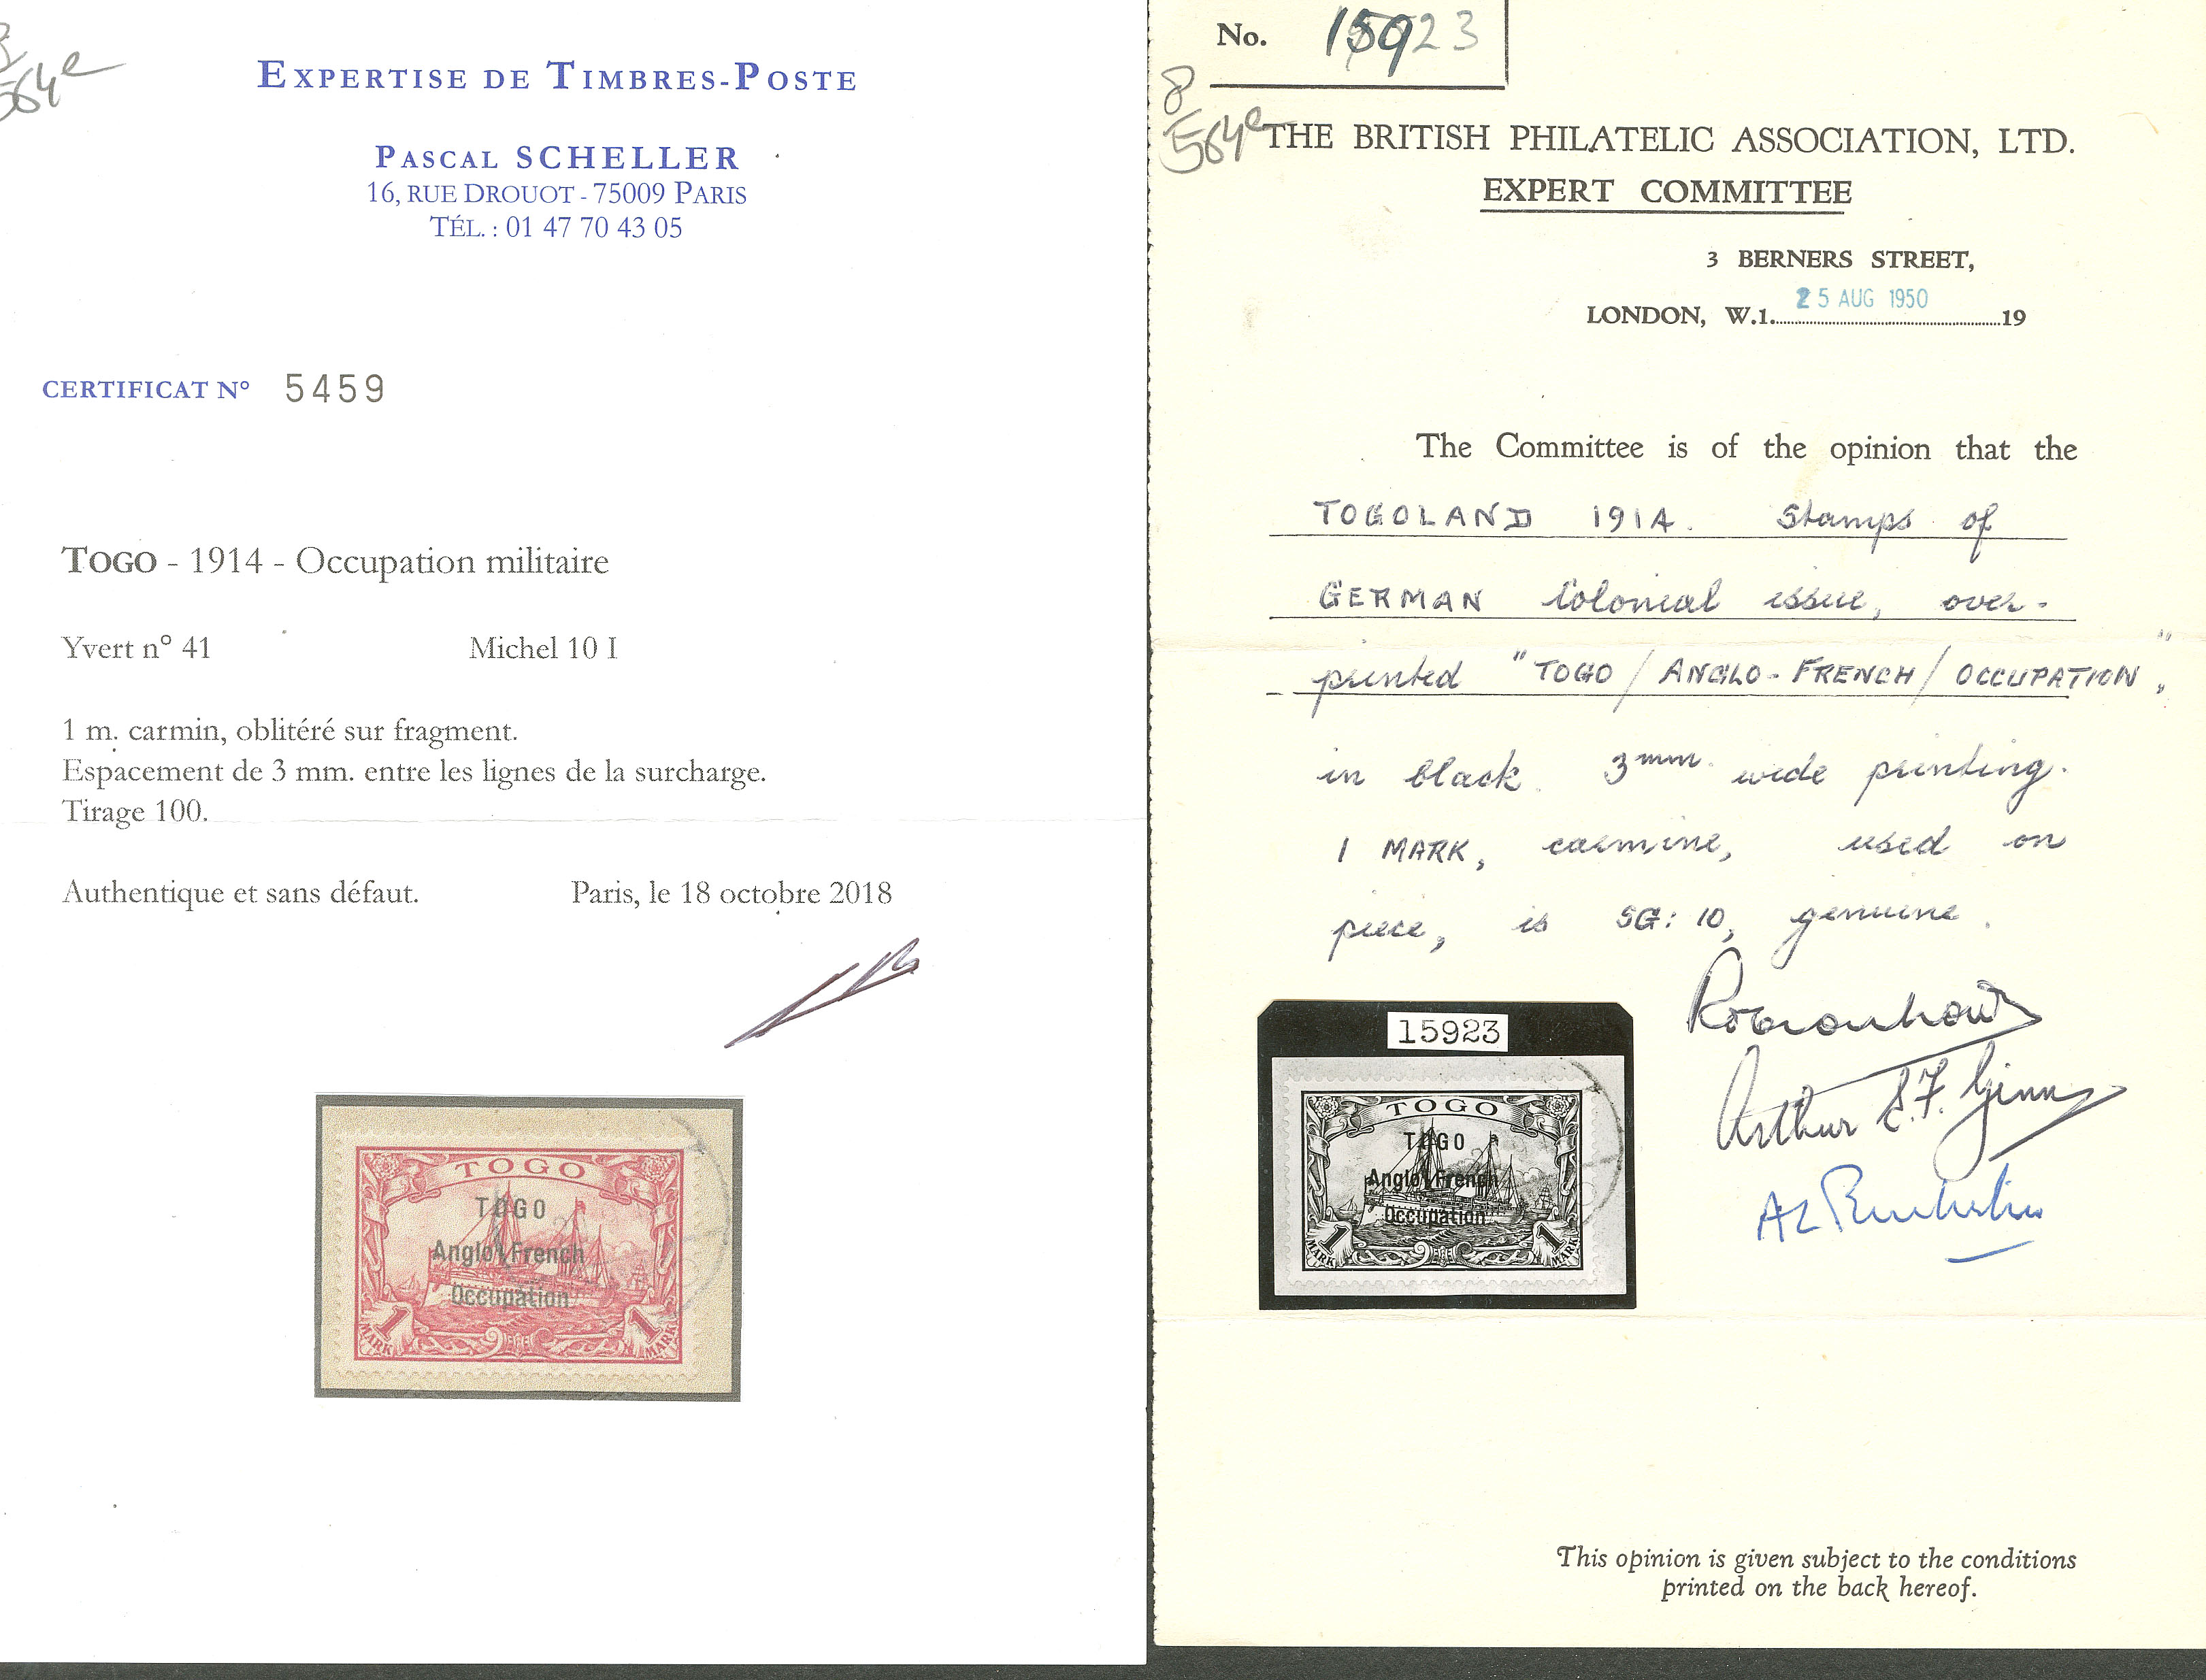 8
564e
EXPERTISE DE TIMBRES-POSTE
PASCAL SCHELLER
16, RUE DROUOT - 75009 PARIS
TÉL. : 01 47 70 43 05
CERTIFICAT N° 5459
TOGO - 1914 - Occupation militaire
Yvert n° 41 Michel 10 I
1 m. carmin, oblitéré sur fragment.
Espacement de 3 mm. entre les lignes de la surcharge.
Tirage 100.
Authentique et sans défaut. Paris, le 18 octobre 2018
TOGO
TOGO
Anglo French
Occupation
1 MARK 1 MARK
No. 15923
8
564e
THE BRITISH PHILATELIC ASSOCIATION, LTD.
EXPERT COMMITTEE
3 BERNERS STREET,
LONDON, W.1. 25 AUG 1950 19
The Committee is of the opinion that the
TOGOLAND 1914. Stamps of
GERMAN Colonial issue, over-
printed "TOGO / ANGLO-FRENCH / OCCUPATION,"
in black. 3mm. wide printing.
1 MARK, carmine, used on
piece, is SG: 10, genuine.
Arthur E.F. Ginn
15923
TOGO
TOGO
Anglo French
Occupation
1 MARK 1 MARK
This opinion is given subject to the conditions
printed on the back hereof.